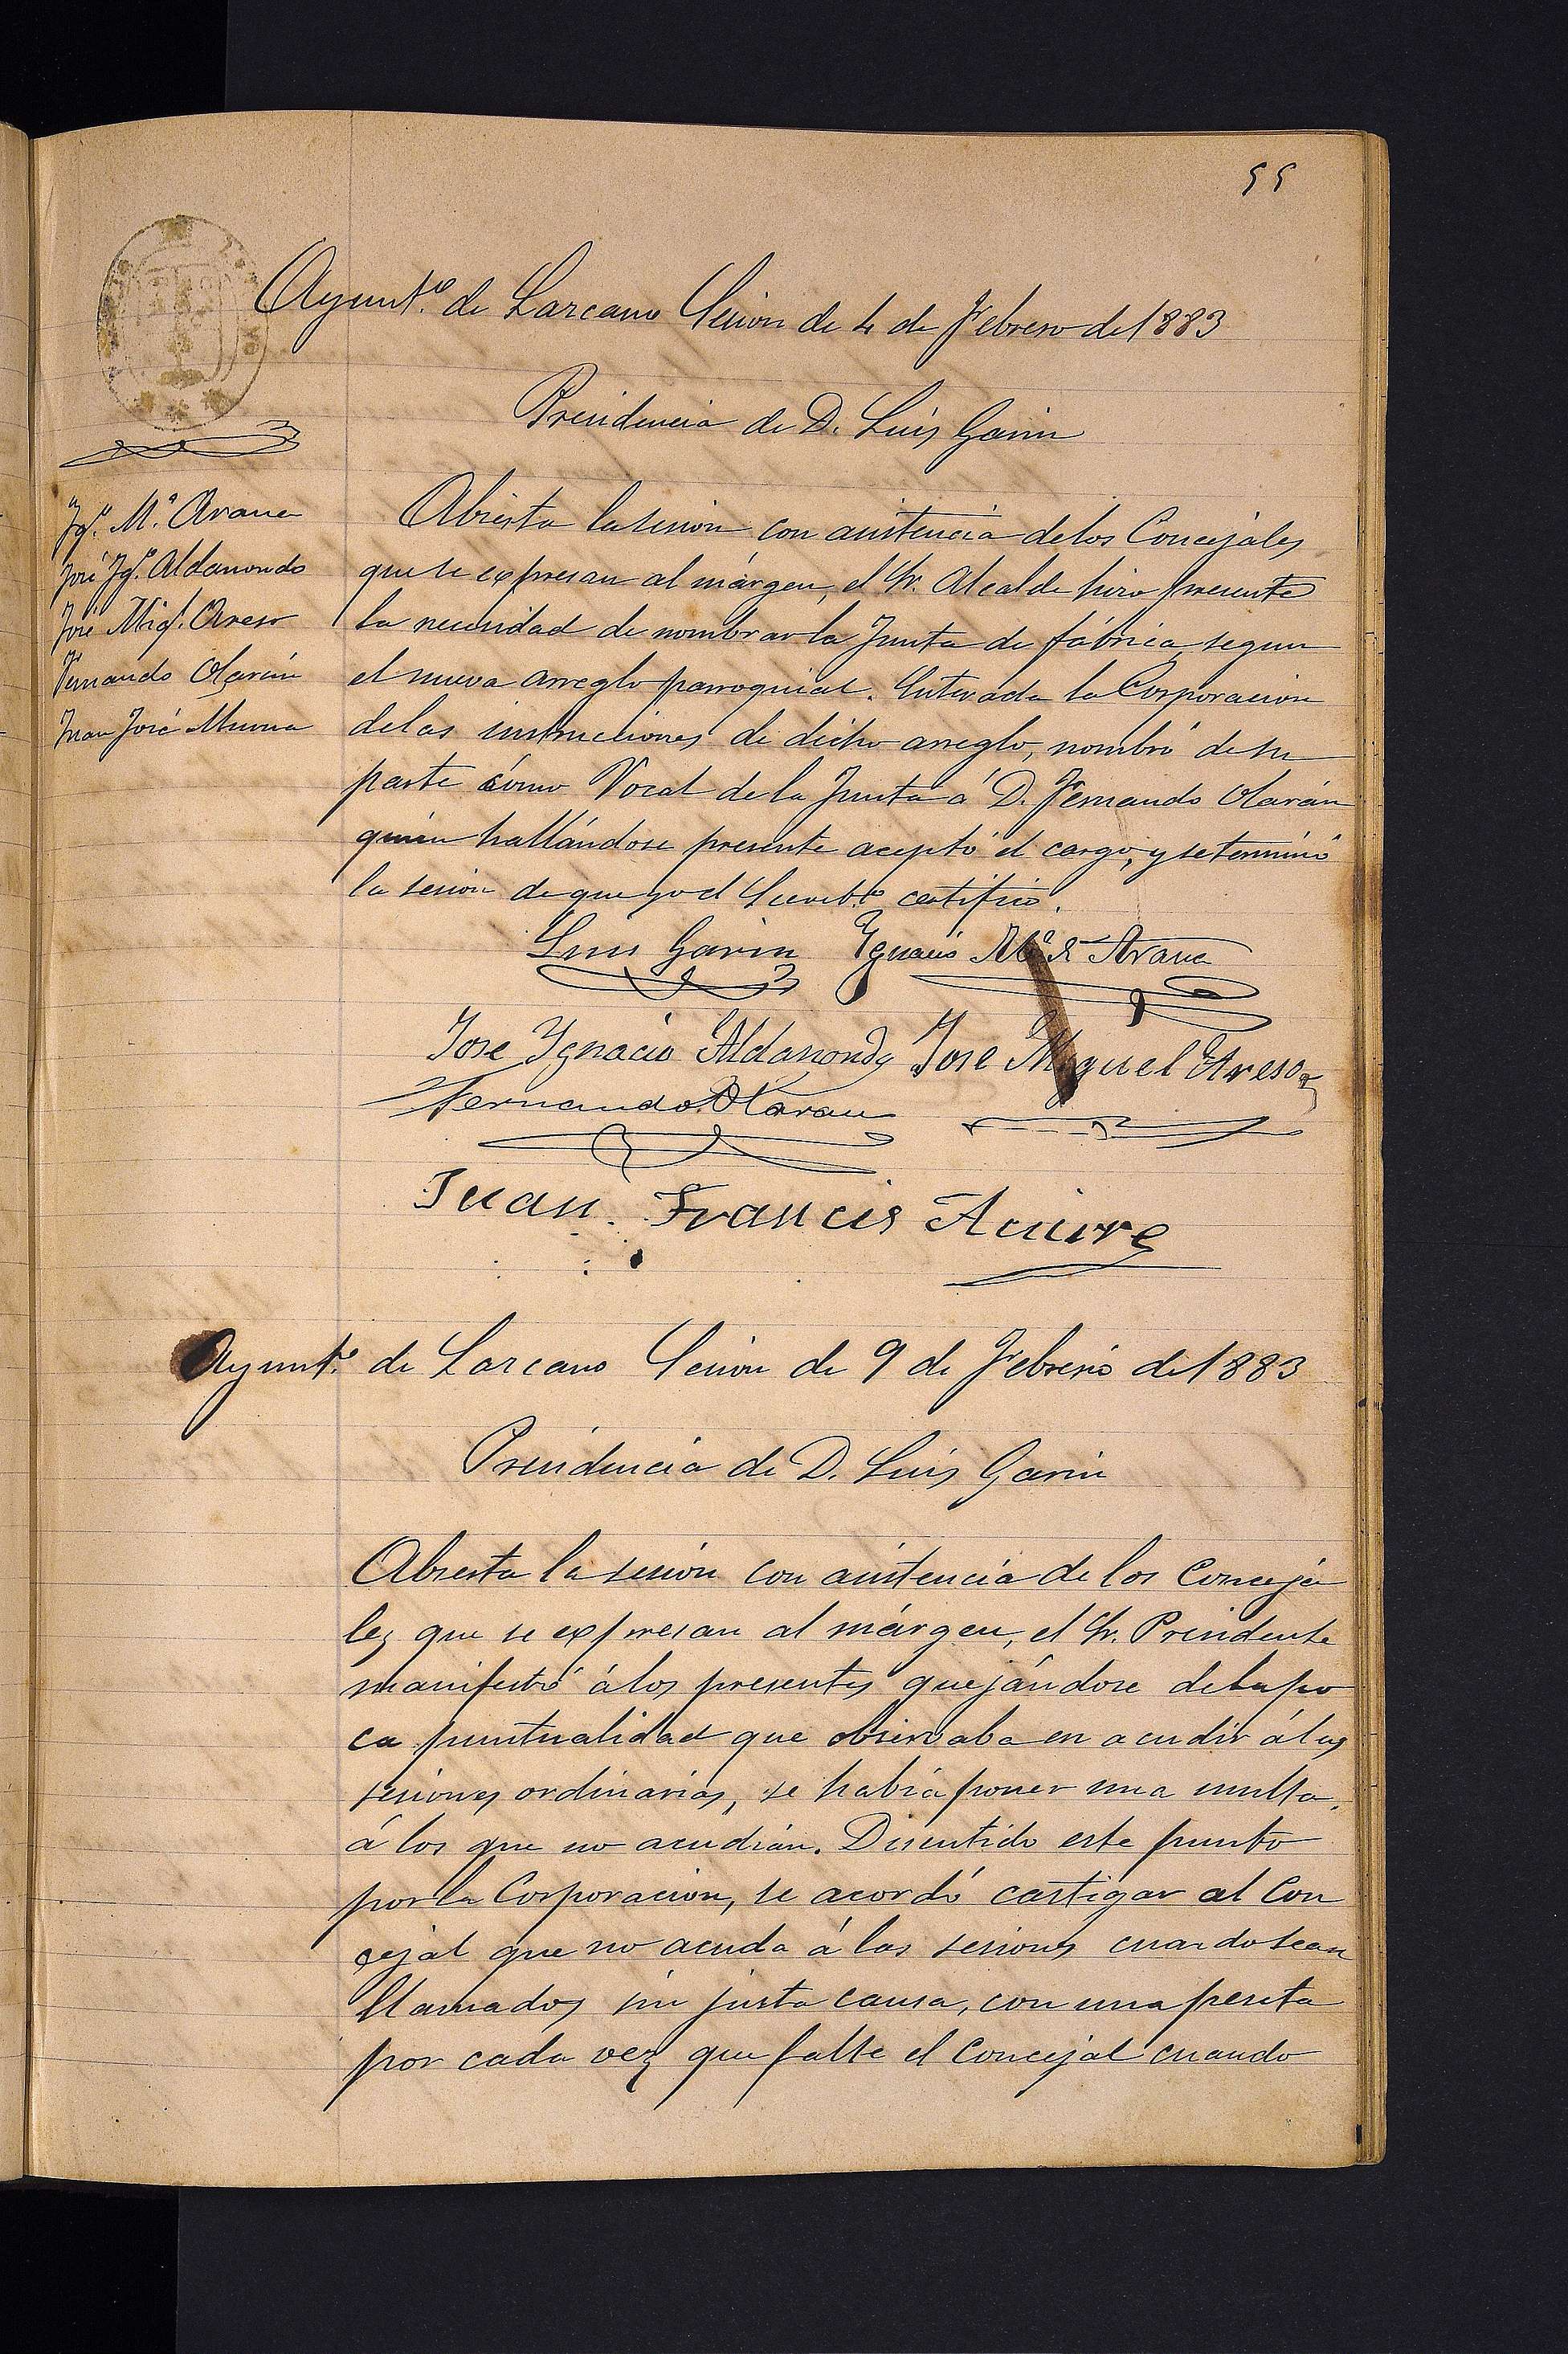 55
Ayunt.º de Lazcano Sesion de 4 de Febrero de 1883
Presidencia de D. Luis Garin
Ygº. M.ª Arana
José Ygº. Aldanondo
José Migl. Areso
Fernando Olarán
Juan José Murua
Abierta la sesion con asistencia de los Concejales
que se expresan al márgen, el Sr. Alcalde hizo presente
la necesidad de nombrar la Junta de fábrica segun
el nueva arreglo parroquial. Enterada la Corporacion
de las instrucciones de dicho arreglo, nombró de su
parte cómo Vocal de la Junta á D. Fernando Olarán
quién hallándose presente aceptó el cargo, y se terminó
la sesion de que yo el Secret.º certifico.
Luis Garin Ygnacio M.ª de Arana
Jose Ygnacio Aldanondo Jose Miguel Areso
Fernando Olaran
Juan Francis Acuirre
Ayunt.º de Lazcano Sesion de 9 de Febrero de 1883
Presidencia de D. Luis Garin
Abierta la sesión con asistencia de los Conceja
les que se expresan al márgen, el Sr. Presidente
manifestó á los presentes quejándose de la po
ca puntualidad que observaba en acudir á las
sesiones ordinarias, se habia poner una multa,
á los que no acudián. Discutido este punto
por la Corporacion, se acordó castigar al Con
cejal que no acuda á las sesiones cuando sean
llamados sin justa causa, con una peseta
por cada vez que falte el Concejal cuando